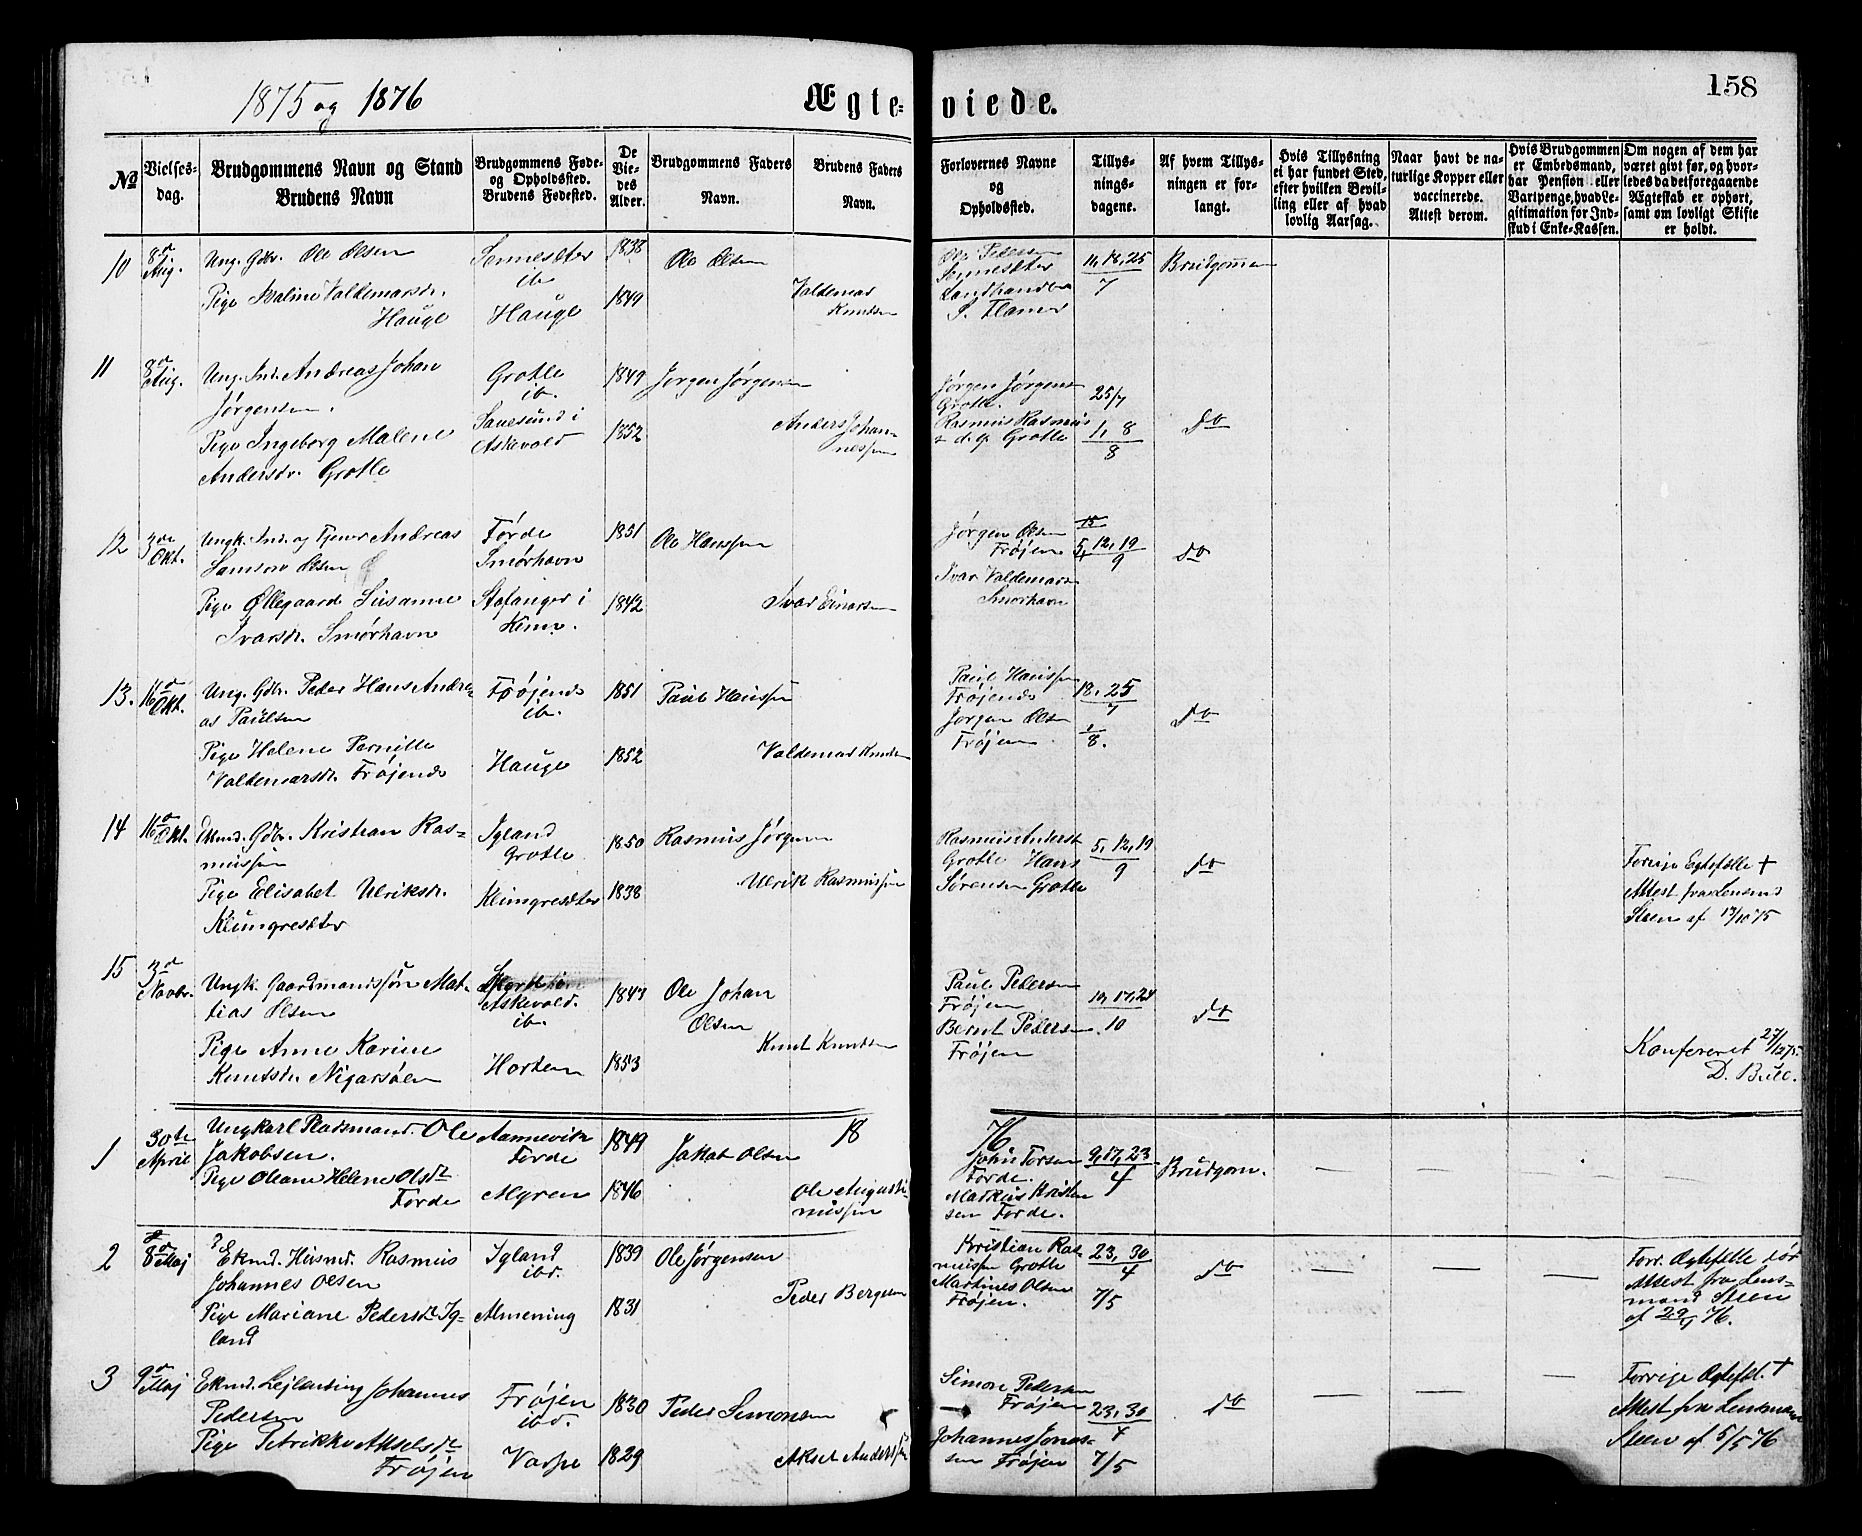 1875 og 1876
Ægte-
viede.
158
No
Vielses-
dag.
Brudgommens Navn og Stand
Brudens Navn
Brudgommens Føde-
og Opholdssted.
Brudens Fødested.
De
Vie-
des
Alder.
Brudgommens Faders
Navn.
Brudens Faders
Navn.
Forlovernes Navne
og
Opholdssted.
Tillys-
nings-
dagene.
Af hvem Tillys-
ningen er for-
langt.
Hvis Tillysning
ei har fundet Sted,
efter hvilken Bevil-
ling eller af hvad
lovlig Aarsag.
Naar havt de na-
turlige Kopper eller
vaccinerede.
Attest derom.
Hvis Brudgommen
er Embedsmand,
har Pension eller
Vartpenge, hvad Le-
gitimation for Ind-
skud i Enke-Kassen.
Om nogen af dem har
været givt før, og hvor-
ledes da det foregaaende
Ægteskab er ophørt,
samt om lovligt Skifte
er holdt.
10
8d
Aug.
Ung. Gdbr. Ole Olsen
Pige Maline Valdemarsdr.
Hauge
Sennesæter
ib
Hauge
1838
1849
Ole Olsen
Valdemar
Knutsen
Ole Pedersen
Sennesæter
Landhandler
11, 18, 25
7
Brudgommen
11
8d
Aug.
Ung. Ind. Andreas Johan
Jørgensen.
Pige Ingeborg Malene
Andersdr. Grotle
Grotle
ib.
Sauesund i
Askevold
1849
1852
Jørgen Jørgensen
Anders Johan-
nessen
Jørgen Jørgensen
Grotle.
Rasmus Rasmus
s. d. g. Grotle
25/7
1, 8
8
do
12
3de
Okt.
Ungk. Ind. og Tjener Andreas
Samson Olsen
Pige Øllegaard Susanne
Ivarsdr. Smørhavn
Førde
Smørhavn
Stafanger i
Kinn.
1851
1842
Ole Hanssen
Ivar Einarsen
Jørgen Olsen
Frøjen
Ivar Valdemars
Smørhavn
15
5, 12, 19
9
do
13.
16d
Okt.
Ung. Gdbr. Peder Hans Andre-
as Paulsen
Pige Helene Pernille
Valdemarsdr. Frøjende
Frøjende
ib.
Hauge
1851
1852
Paul Hanssen
Valdemar Knutsen
Paul Hanssen
Frøjende
Jørgen Olsen
Frøjen.
18, 25
7
1/8.
do
14
16d
Okt.
Ekmd. Gdbr. Kristian Ras-
mussen
Pige Elisabet Ulriksdr.
Klungresæter
Igland
Grotle
Klungresæter
1850
1838
Rasmus Jørgensen
Ulrik Rasmussen
Rasmus Anders
Grotle Hans
Sørensen Grotle
5, 12, 19
9
do
Forrige Egtefælle +
Attest fra Lensmd
Steen af 13/10 75
15
3d
Novbr.
Ungk. Gaardmandssøn Mat-
tias Olsen
Pige Anne Karine
Knutsdr. Nigarsøen
Askevold.
ib.
Horten
1847
1853
Ole Johan
Olsen
Knut Knutsen
Paul Pedersen
Frøjen
Bernt Pedersen
Frøjen
10, 17, 24
10
do
Konfereret 27/12 75.
D. Bull.
18
76
1
30te
April
Ungkarl Pladsmand. Ole
Jakobsen.
Pige Oleane Helene Olsdr
Førde
Aannevik
Førde
Myren
1849
1846
Jakob Olsen
Ole Augusti-
nussen
John Torsen
Førde.
Markus Kristen
sen Førde.
9, 17, 23
4
Brudgom.
2
8d
Maj
Ekmd. Husmd. Rasmus
Johannes Olsen
Pige Mariane Pedersdr Ig-
land
Igland
ibd.
Almening
1839
1831
Ole Jørgensen
Peder Bergesen
Kristian Ras-
mussen Grotle
Martines Olsen
Frøjen.
23, 30
4
7/5
do
Forr. Ægtefelle dør
Attest fra Lens-
mand Steen
af 29/4 76.
3
9d
Maj
Ekmd. Lejlænding Johannes
Pedersen
Pige Petrikke Akselsdr
Frøjen
Frøjen
ibd.
Varpe
1830
1829
Peder Simonsen
Aksel Anderssen
Simon Pedersen
Frøjen
Johannes Jonas-
sen Frøjen
23, 30
4
7/5
do
Forrige Ægtefel. +
Attest fra Lensmand
Steen af 5/5 76